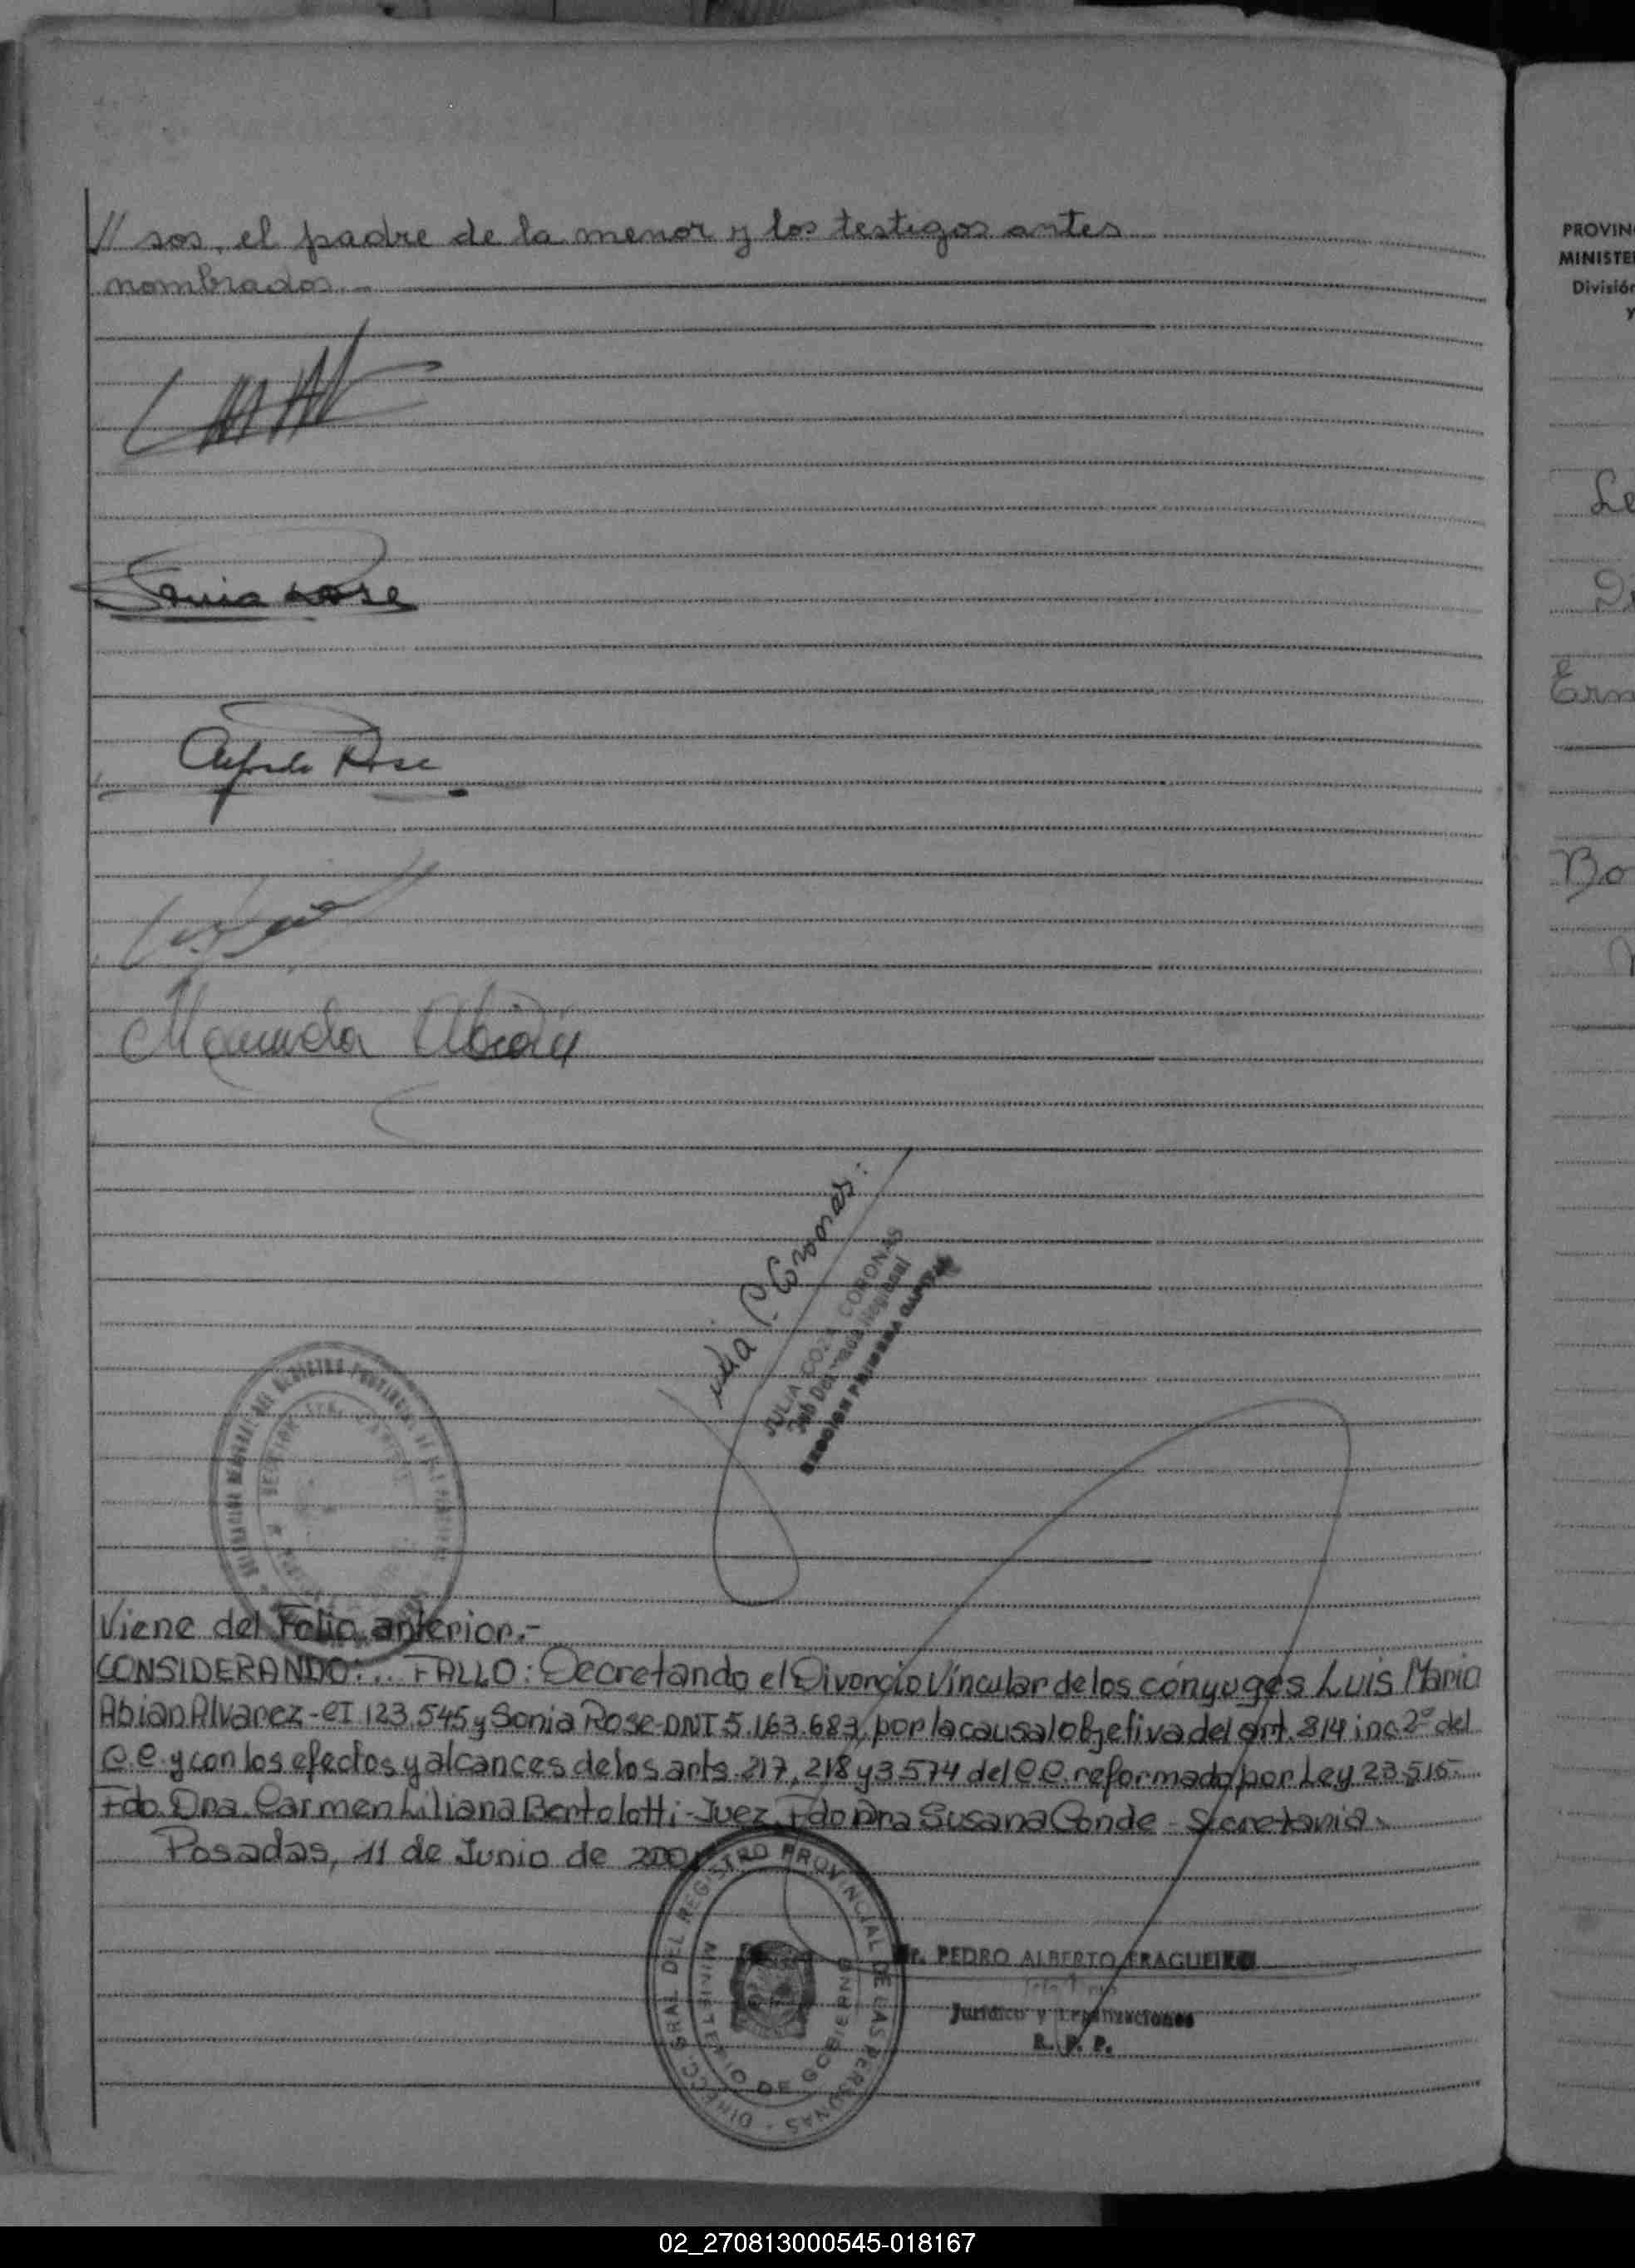 // sos, el padre de la menor y los testigos antes
nombrados.-
Sonia Rose
Alfredo Rose
Manuela Abián
Julia C. Coronas
JULIA COZZI CORONAS
Sub Delegada Regional
SECCION PRIMERA CAPITAL
Viene del Folio anterior.-
CONSIDERANDO:... FALLO: Decretando el Divorcio Vincular de los cónyuges Luis Maria
Abian Alvarez - CI 123.545 y Sonia Rose - DNI 5.163.683, por la causal objetiva del art. 214 inc 2º del
C.C. y con los efectos y alcances de los arts. 217, 218 y 3.574 del C.C. reformado por Ley 23.515.
Fdo. Dra. Carmen Liliana Bertolotti - Juez. Fdo Dra Susana Conde - Secretaria.
Posadas, 11 de Junio de 200
DIRECC. GRAL DEL REGISTRO PROVINCIAL DE LAS PERSONAS
MINISTERIO DE GOBIERNO
Dr. PEDRO ALBERTO FRAGUEIRO
Jurídico y Legalizaciones
R. P. P.
PROVIN
MINISTE
División
y
Le
Di
Erm
Bo
02_270813000545-018167